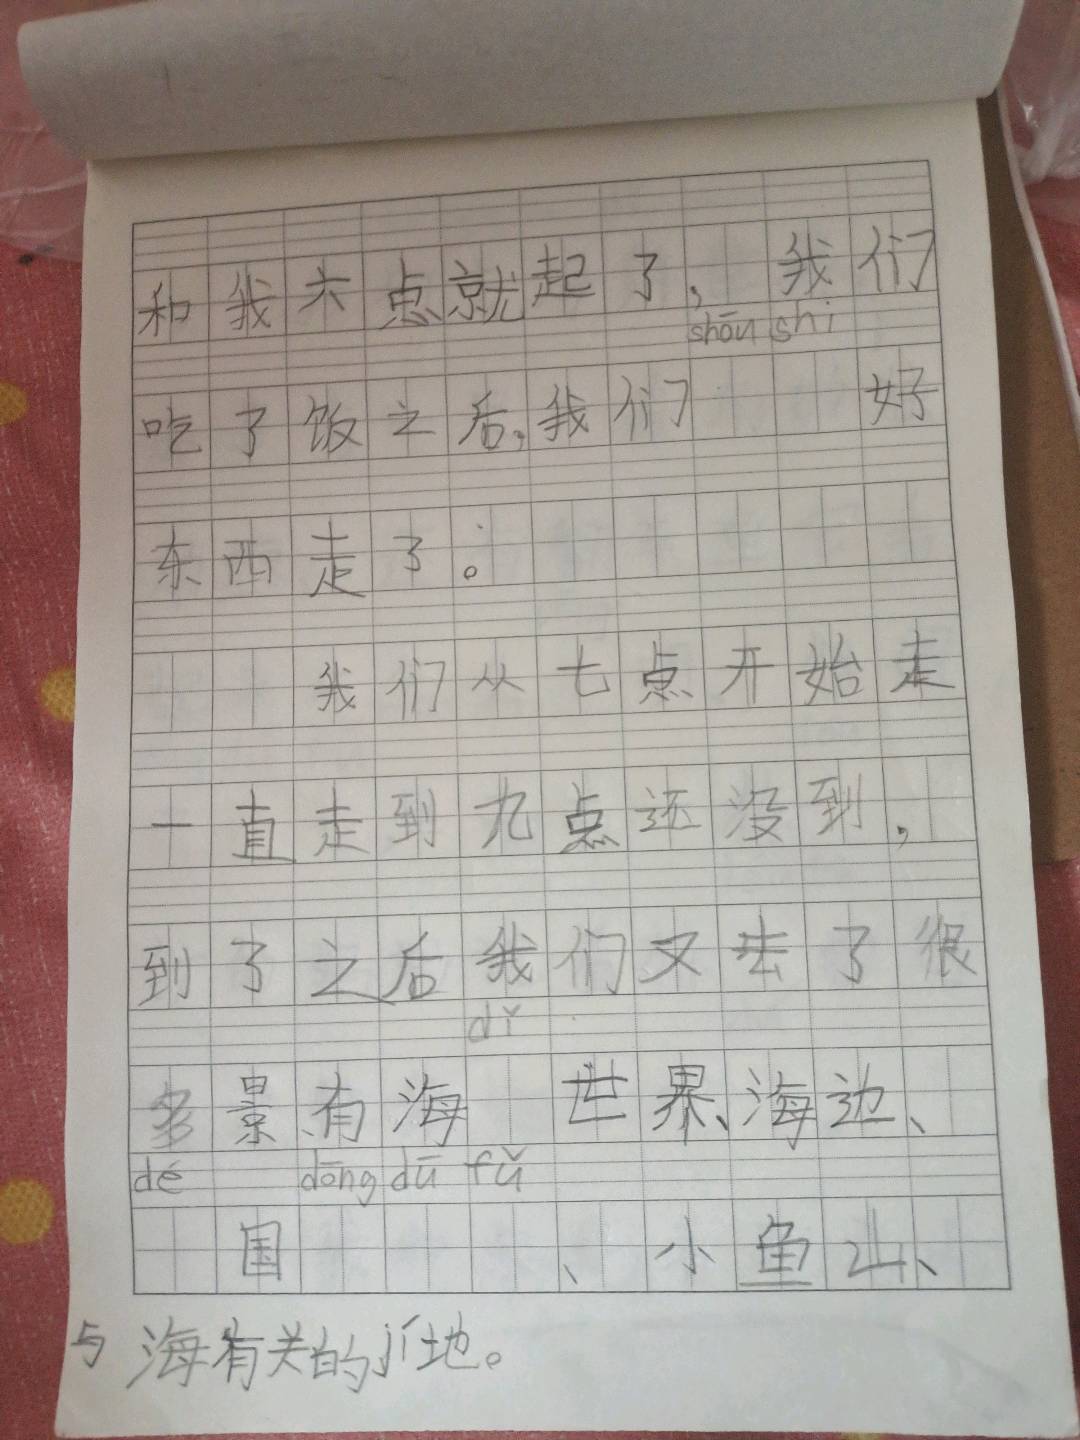 和我六点就起了，我们
shōu shi
吃了饭之后，我们 好
东西走了。
我们从七点开始走
一直走到九点还没到，
到了之后我们又去了很
dǐ
多景有海 世界、海边、
dé dōng dū fǔ
国 、小鱼山、
与海有关的 地。